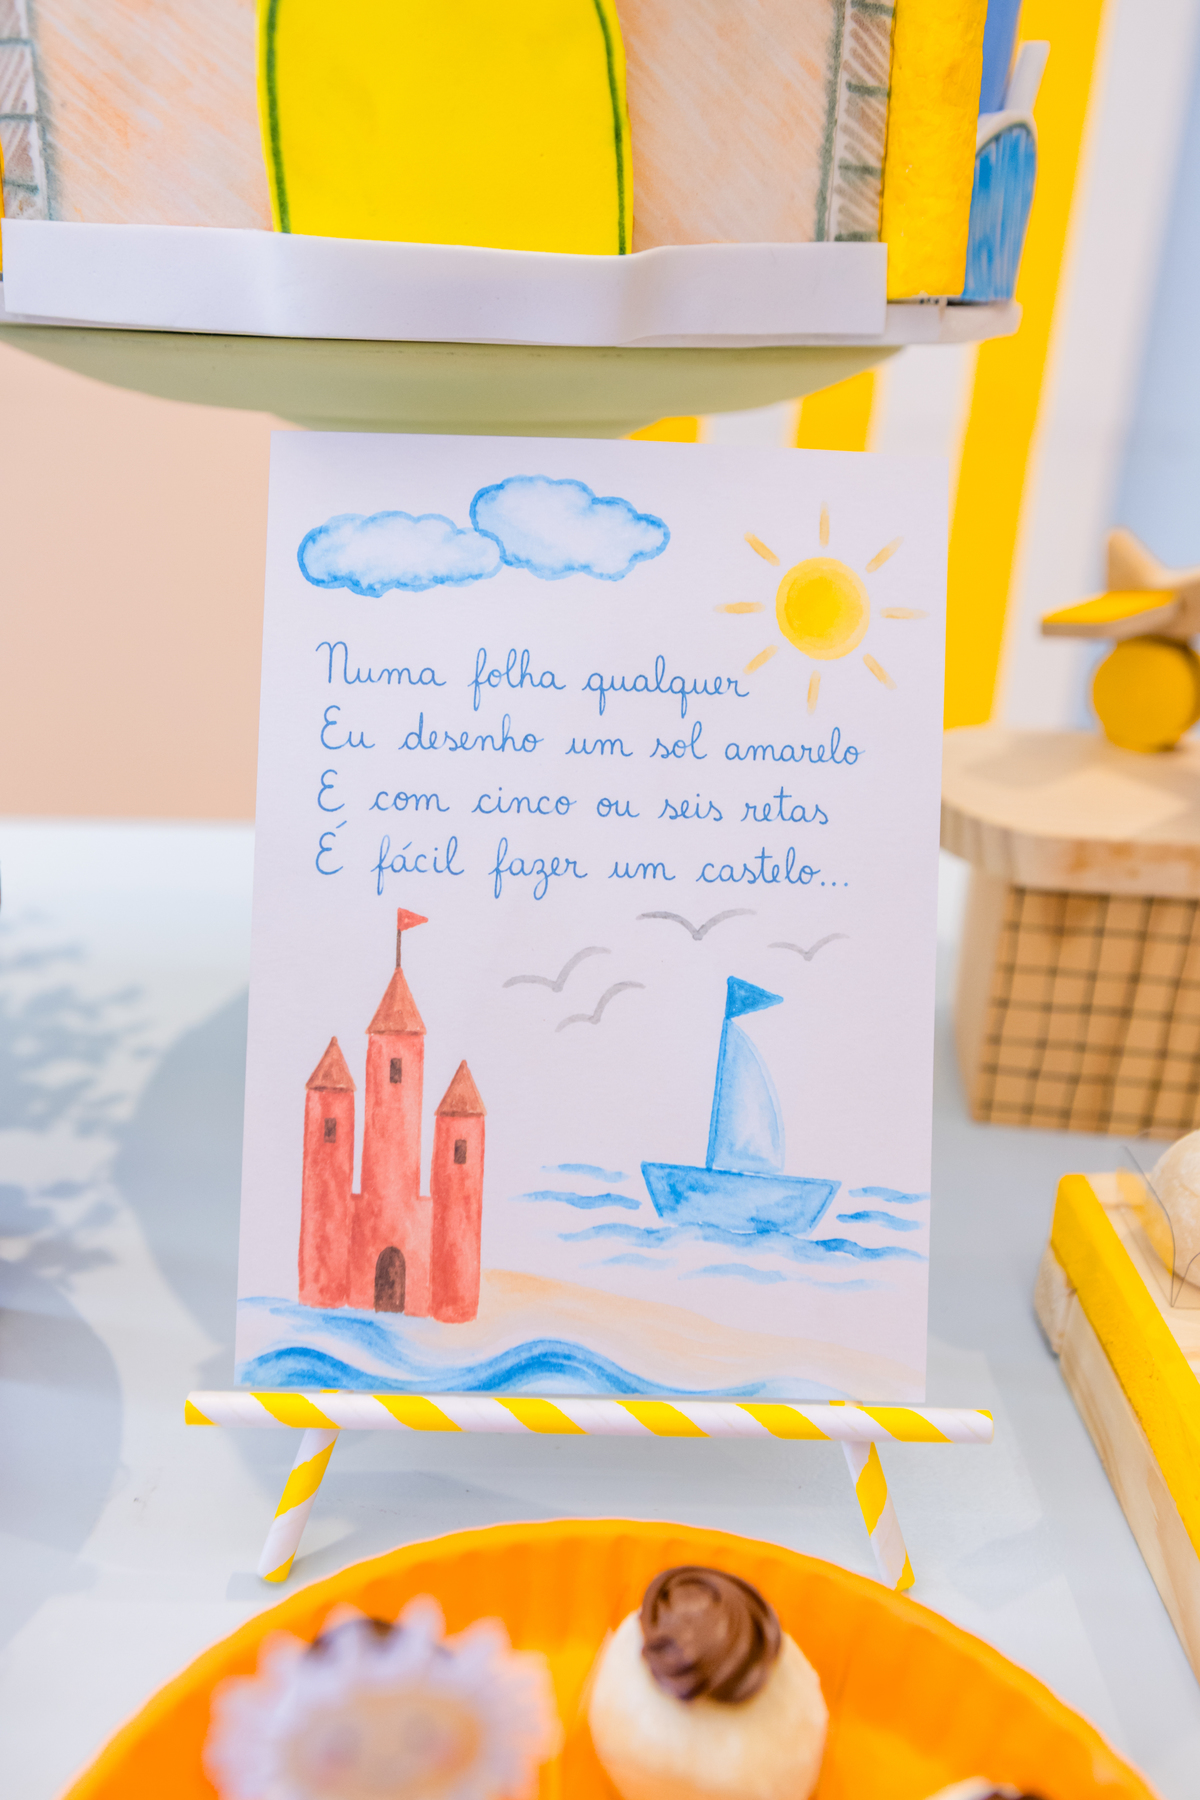 Numa folha qualquer
Eu desenho um sol amarelo
E com cinco ou seis retas
É fácil fazer um castelo...